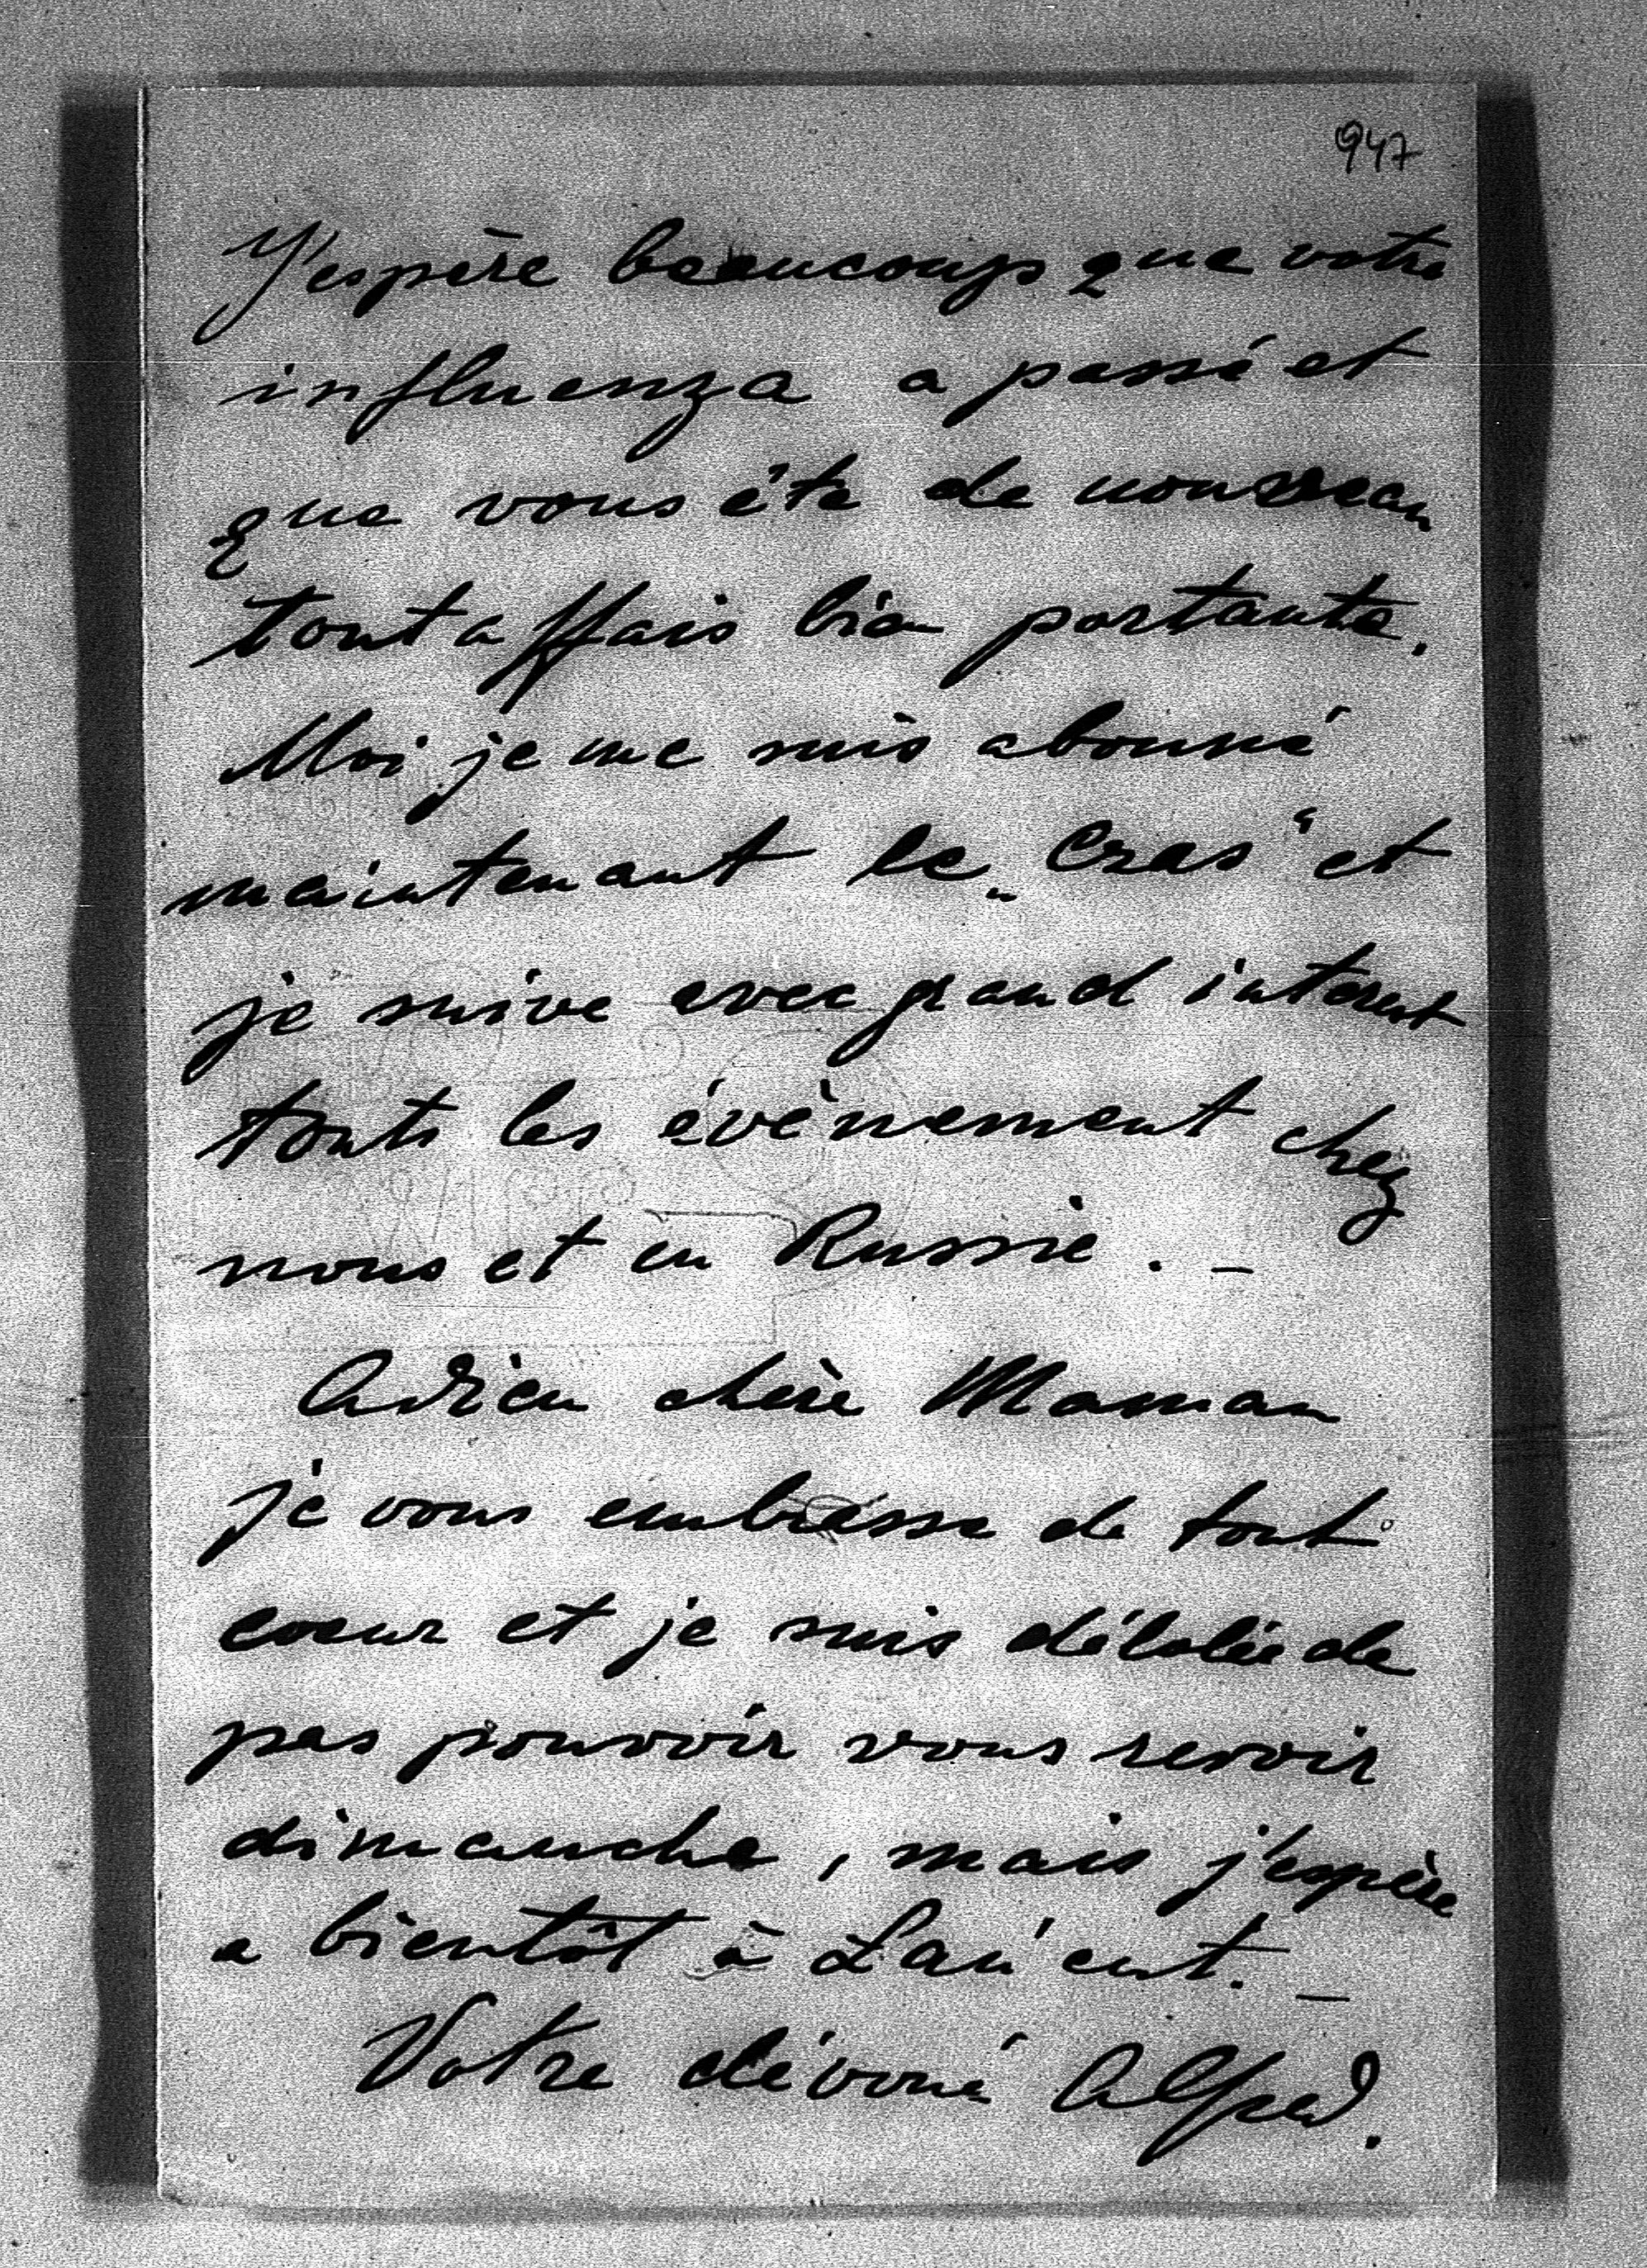 947
J'espère beaucoup que votre
influenza a passé et
que vous éte de nouveau
tout a ffais bien portante.
Moi je me suis abonné
maintenant le „Czas“ et
je suive avec grand interest
touts les évènement chez
nous et en Russie. –
Adieu chère Maman
je vous embrasse de tout
coeur et je suis désolée de
pas pouvoir vous revoir
dimanche, mais j'espère
a bientôt à . –
Votre dévoué Alfred.